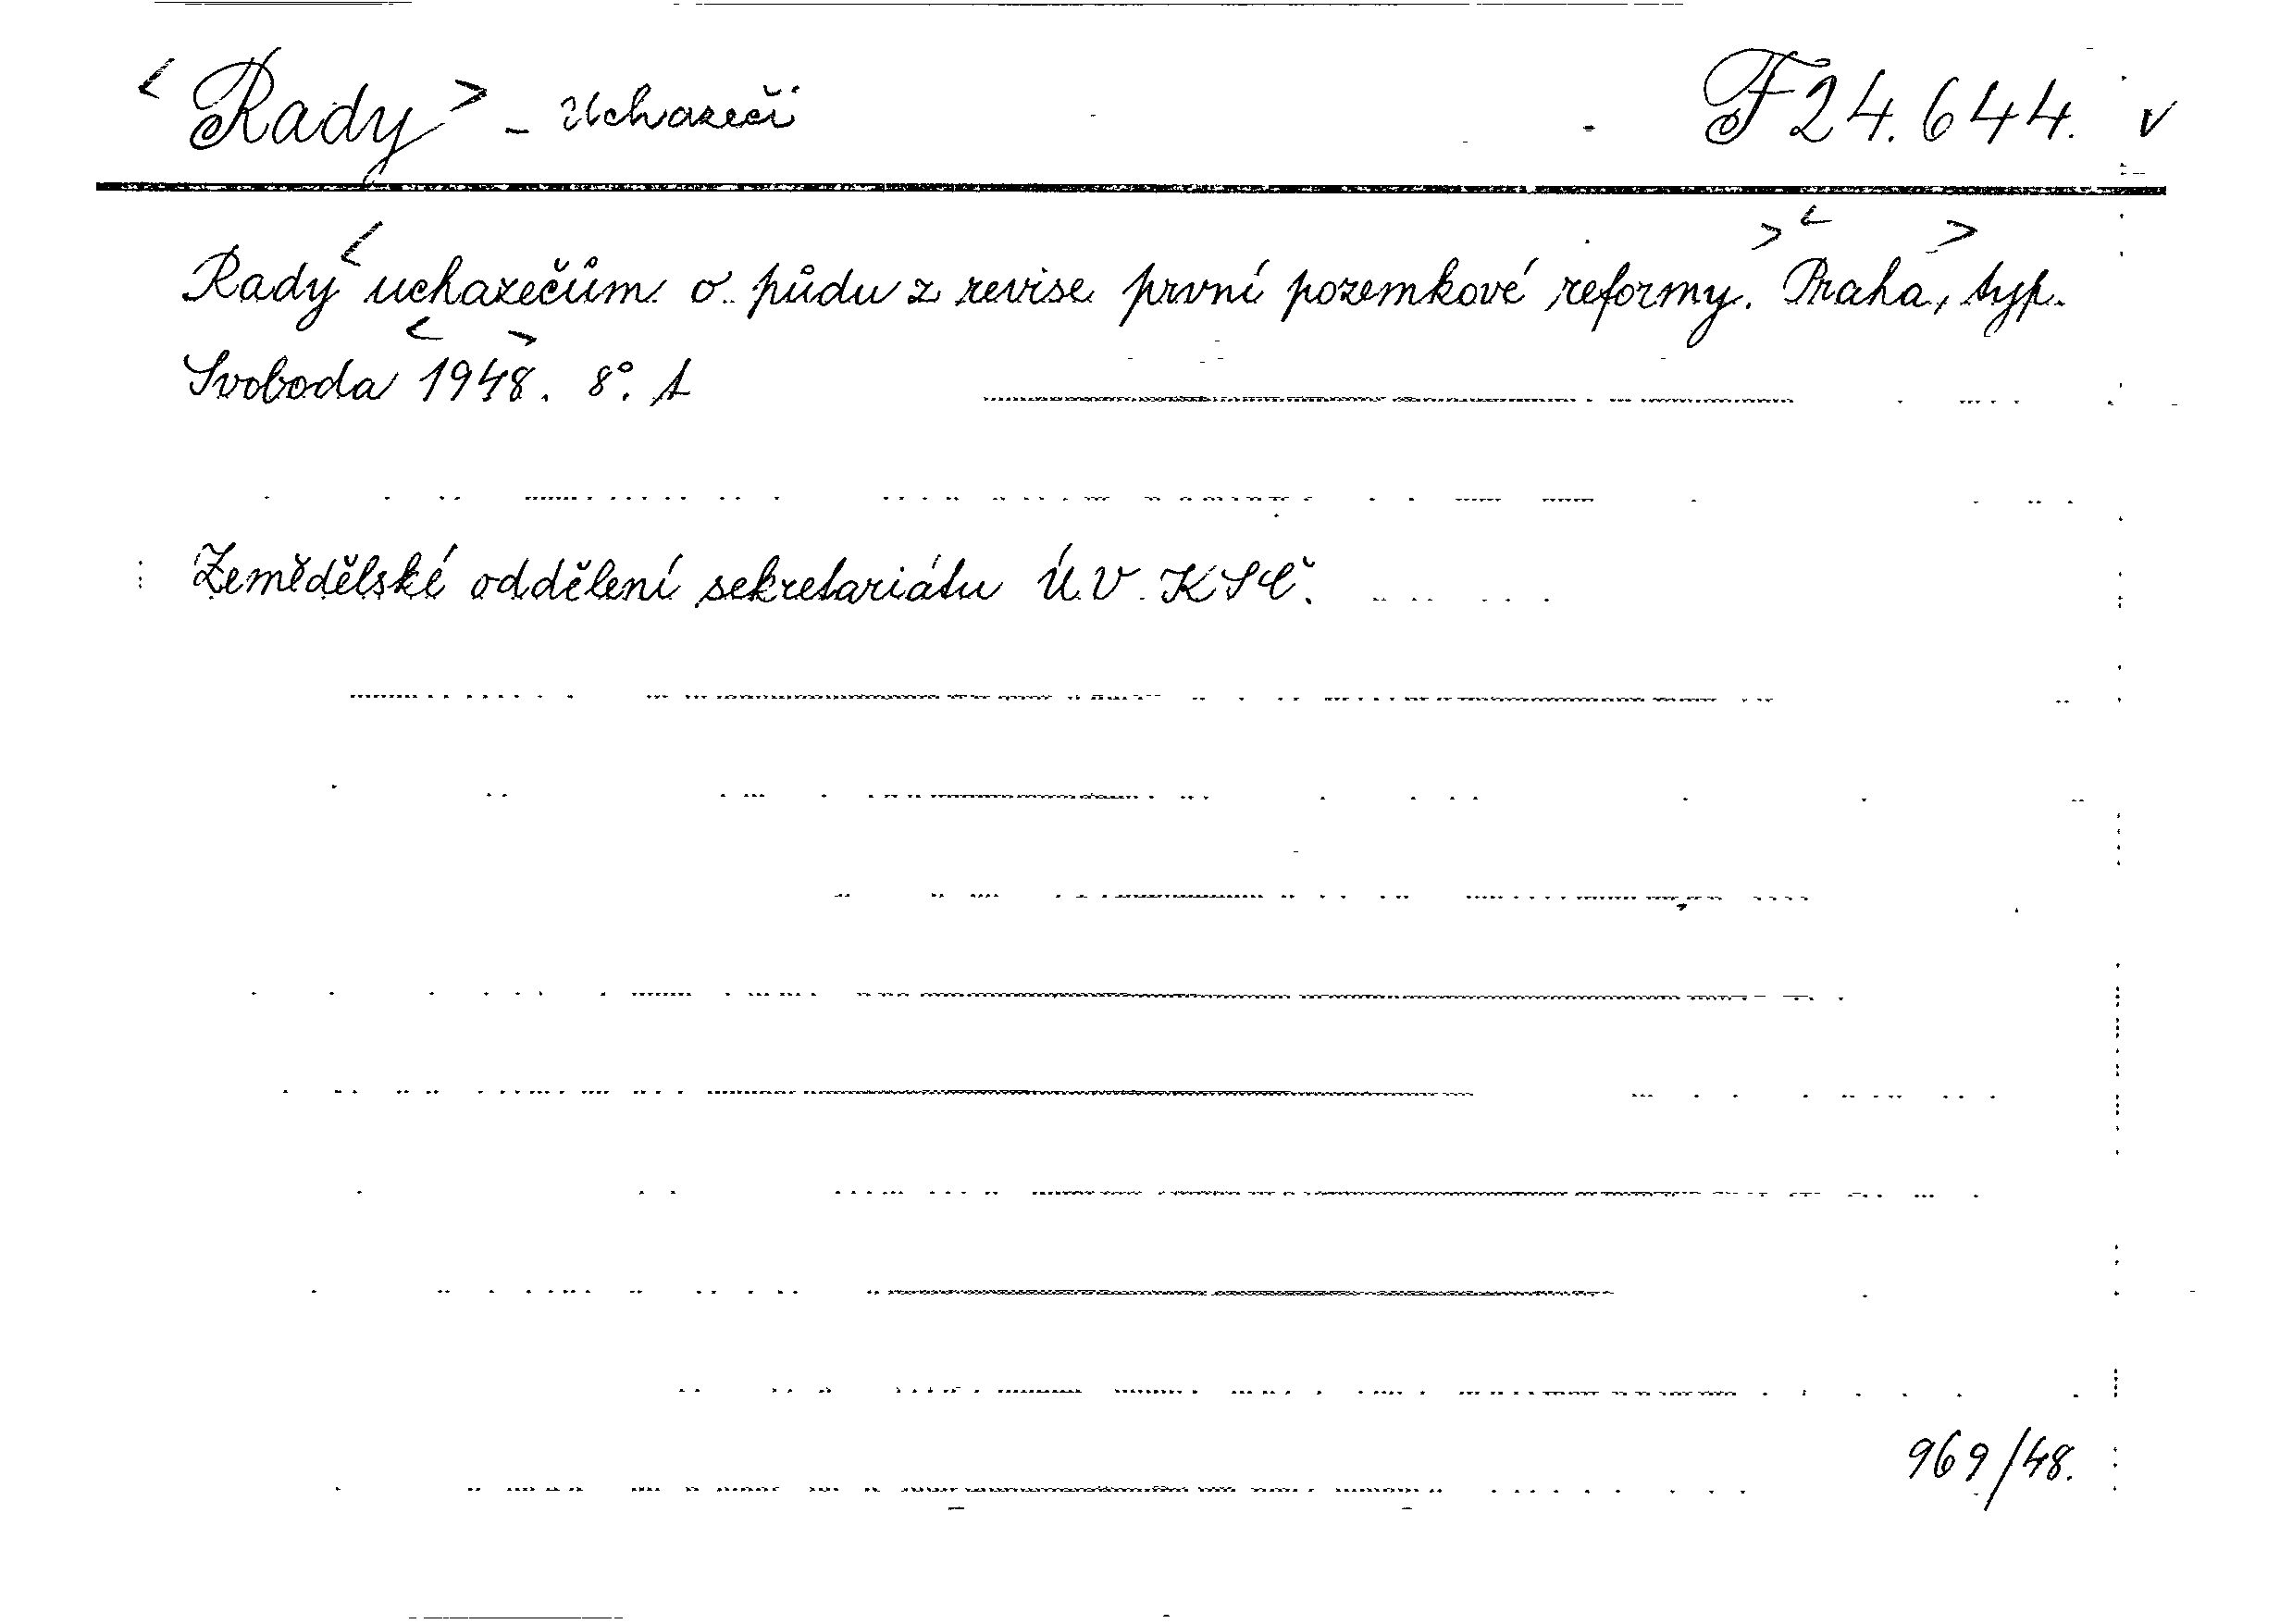 <Rady> - Uchazeči F 24.644. v
Rady <uchazečům o půdu z revise první pozemkové reformy.> <Praha,> typ.
Svoboda <1948>. 8°.
Zemědělské oddělení sekretariátu Ú.V. KSČ.
969/48.